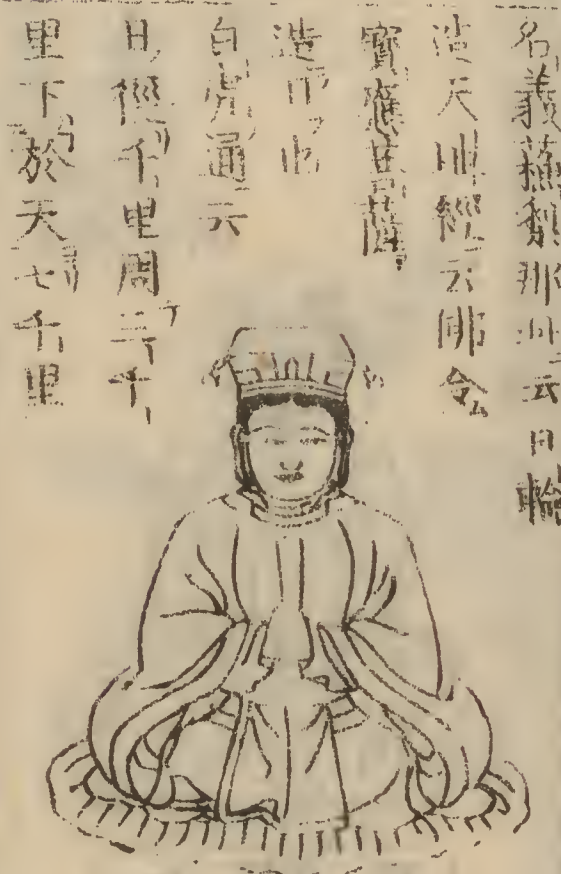 名義蘓那此云日輪
造天地經云佛令
寶應菩薩
造日也
白虎通云
日徑千里周三千
里下於天七千里